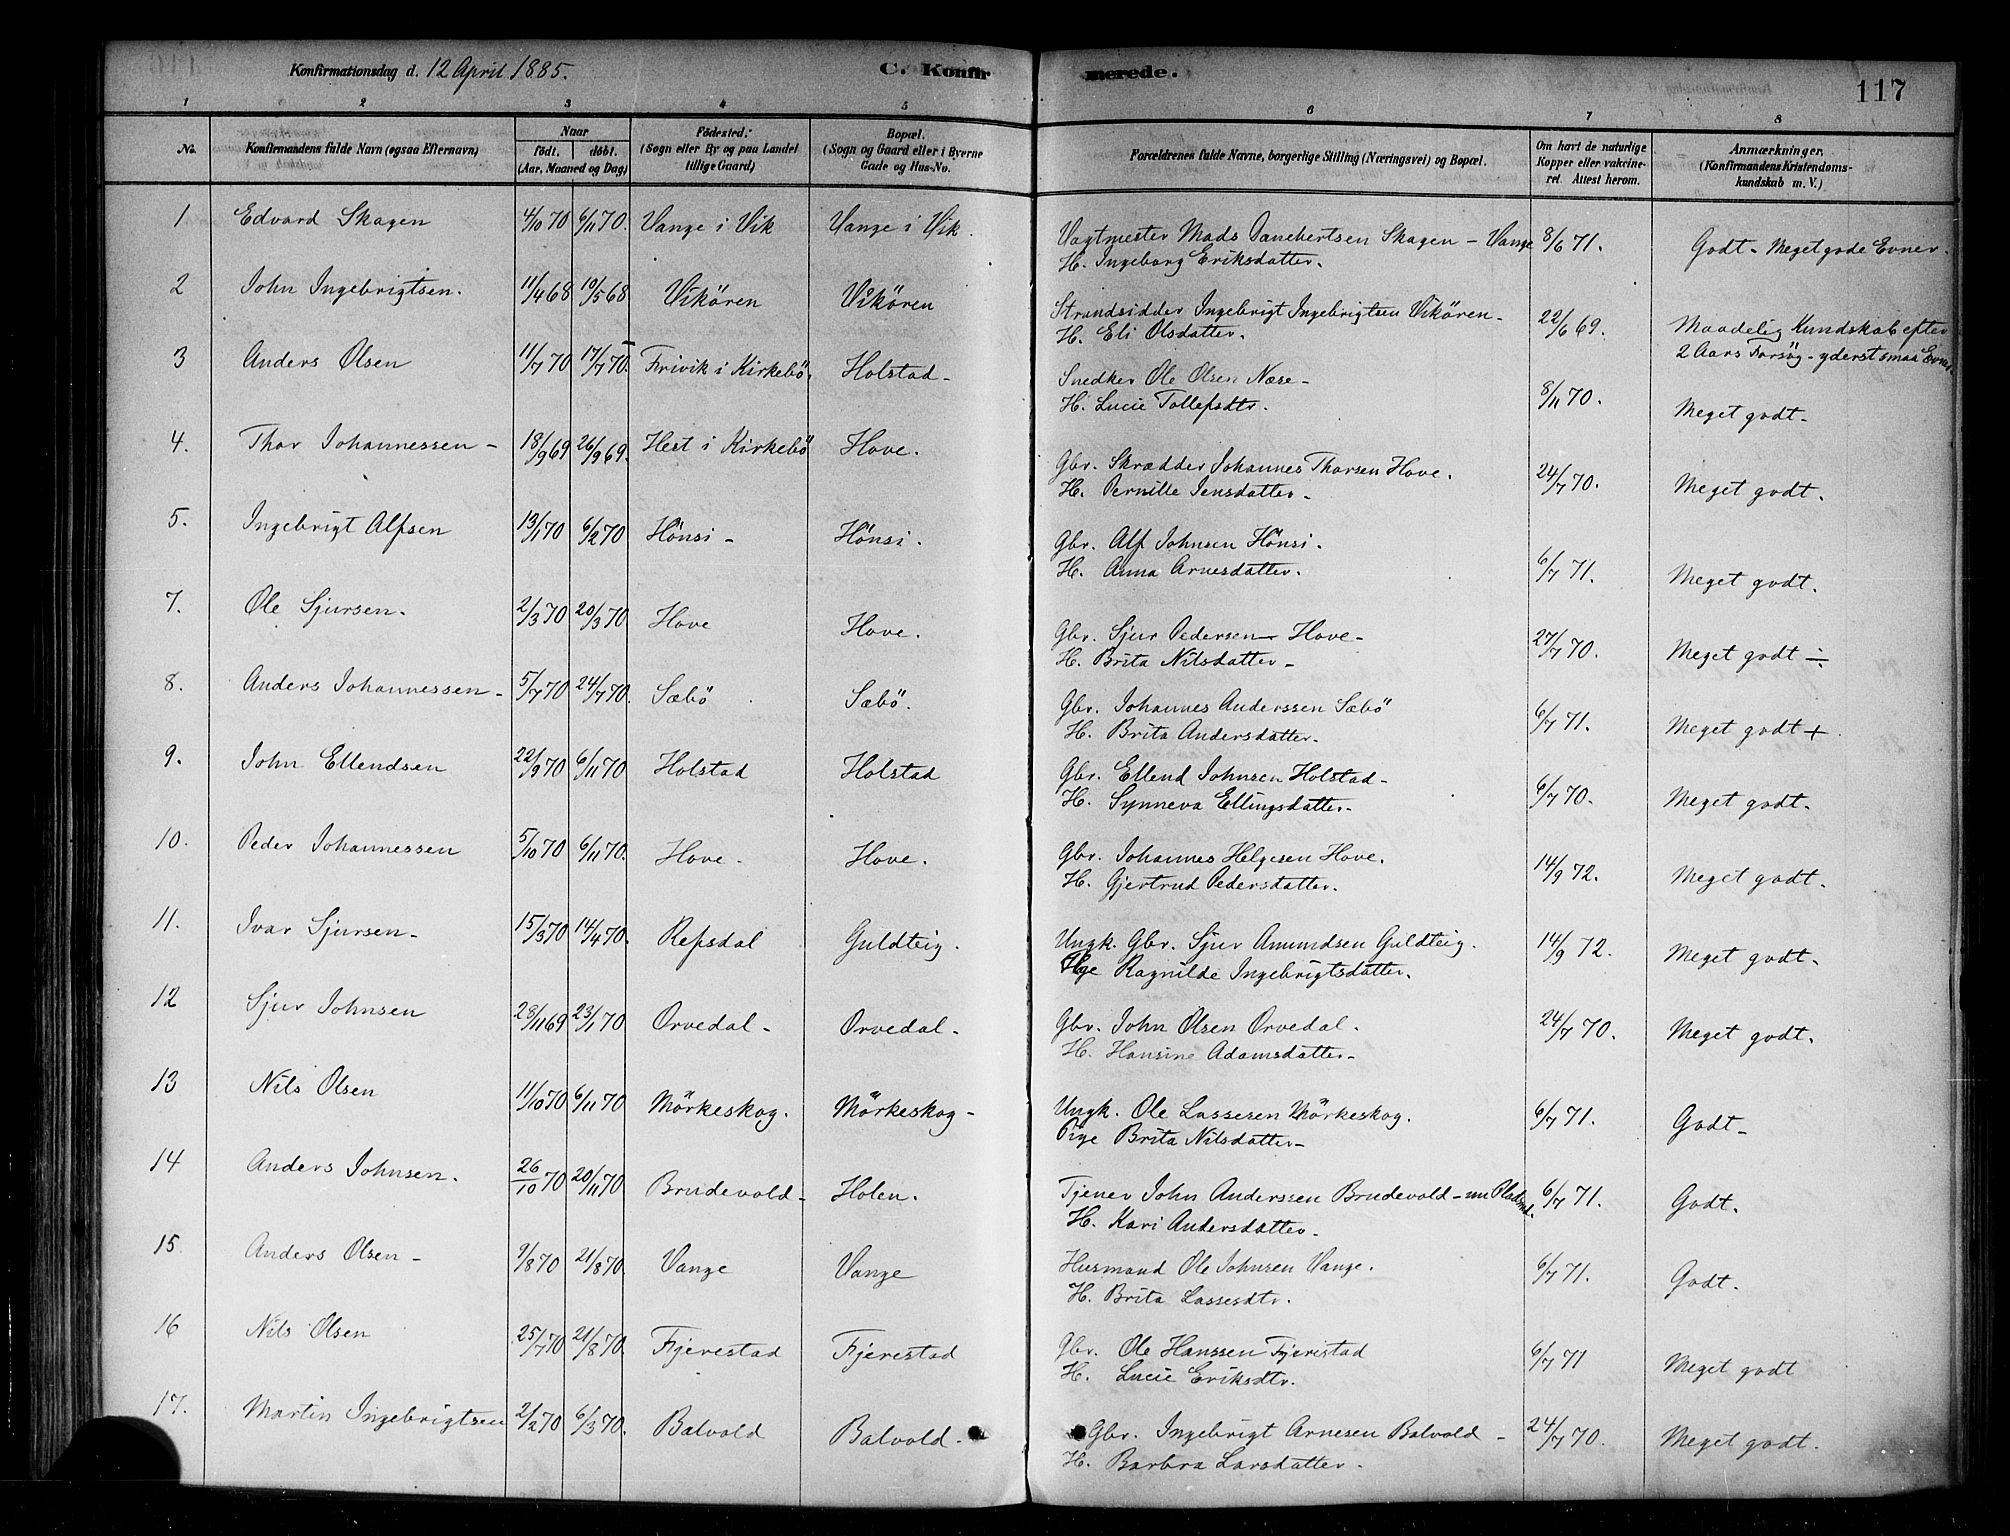 Konfirmationsdag d. 12 April 1885. C. Konfirmerede. 117
1 2 3 4 5 6 7 8
No. Konfirmandens fulde Navn (ogsaa Efternavn) Naar født. døbt. (Aar, Maaned og Dag) Fødested. (Sogn eller By og paa Landet tillige Gaard) Bopæl. (Sogn og Gaard eller i Byerne Gade og Hus-No. Forældrenes fulde Navne, borgerlige Stilling (Næringsvei) og Bopæl. Om havt de naturlige Kopper eller vakcineret. Attest herom. Anmærkninger, (Konfirmandens Kristendomskundskab m. V.)
1 Edvard Skagen 4/10 70 6/11 70. Vange i Vik Vange i Vik. Vagtmester Mads Danebertsen Skagen - Vange 8/6 71. Godt - Meget gode Evner.
H. Ingeborg Eriksdatter.
2 John Ingebrigtsen. 11/4 68 10/5 68 Vikören Vikören Strandsidder Ingebrigt Ingebrigtsen Vikören - 22/6 69. Maadelig Kundskab efter
H. Eli Olsdatter. 2 Aars Forsög - yderst smaa Evner.
3 Anders Olsen 11/7 70 17/7 70. Frivik i Kirkebö. Holstad - Snedker Ole Olsen Nese - 8/11 70. Meget godt -
H. Lucie Tollefsdtr.
4. Thor Johannessen - 18/9 69 26/9 69. Hest i Kirkebö Hove. Gbr. Skrædder Johannes Thorsen Hove. 24/7 70. Meget godt.
H. Pernille Jensdatter -
5. Ingebrigt Alfsen 13/1 70 6/2 70 Hönsi - Hönsi. Gbr. Alf Johnsen Hönsi. 6/7 71. Meget godt.
H. Anna Arnesdatter.
7. Ole Sjursen. 2/3 70 20/3 70 Hove Hove. Gbr. Sjur Pedersen Hove - 27/7 70. Meget godt ÷
H. Brita Nilsdatter -
8. Anders Johannessen - 5/7 70 24/7 70. Sæbö Sæbö. Gbr. Johannes Anderssen Sæbö 6/7 71. Meget godt +
H. Brita Andersdatter.
9. John Ellendsen 22/9 70 6/11 70 Holstad Holstad Gbr. Ellend Johnsen Holstad - 6/7 70. Meget godt.
H. Synneva Ellingsdatter.
10. Peder Johannessen 5/10 70 6/11 70. Hove. Hove. Gbr. Johannes Helgesen Hove. 14/9 72. Meget godt.
H. Gjertrud Pedersdatter.
11. Ivar Sjursen - 15/3 70 14/4 70. Refsdal Guldteig. Ungk. Gbr. Sjur Amundsen Guldteig. 14/9 72. Meget godt.
Ragnilde Ingebrigtsdatter.
12 Sjur Johnsen 28/11 69 23/1 70 Orvedal - Orvedal - Gbr. John Olsen Orvedal. 24/7 70. Meget godt.
H. Hansine Adamsdatter -
13 Nils Olsen 11/10 70 6/11 70 Mörkeskog. Mörkeskog - Ungk. Ole Lassesen Mörkeskog. 6/7 71. Godt -
Pige Brita Nilsdatter -
14 Anders Johnsen. 26/10 70 20/11 70 Brudevold - Holen. Tjener John Anderssen Brudevold - nu Pladsmd. 6/7 71. Godt.
H. Kari Andersdatter
15 Anders Olsen - 9/8 70 21/8 70. Vange Vange Husmand Ole Johnsen Vange. 6/7 71. Godt.
H. Brita Lassesdtr.
16 Nils Olsen 25/7 70 21/8 70. Fjerestad Fjerestad Gbr. Ole Hanssen Fjerestad 6/7 71 Meget godt
H. Lucie Eriksdtr.
17. Martin Ingebrigtsen 2/2 70 6/3 70. Balvold Balvold - Gbr. Ingebrigt Arnesen Balvold - 24/7 70. Meget godt.
H. Barbra Larsdatter.